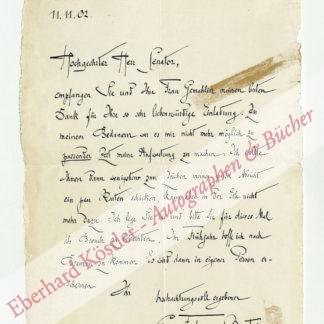 11.11.02.
Hochgeehrter Herr Senator,
empfangen Sie und Ihre Frau Gemahlin meinen besten
Dank für Ihre so sehr liebenswürdige Einladung. Zu
meinem Bedauern war es mir nicht mehr möglich zu
passender Zeit meine Aufwartung zu machen. Ich wollte
Ihnen dann wenigstens zum Zeichen meiner
ein paar Karten schicken
mehr dazu. Ich und bitte Sie für dieses Mal
Im Frühjahr hoffe ich nach
Bremen zu kommen. Es soll dann in eigener Person er-
scheinen
Ihr hochachtungsvoll ergebener
Eberhard Köstler - Autographen & Bücher